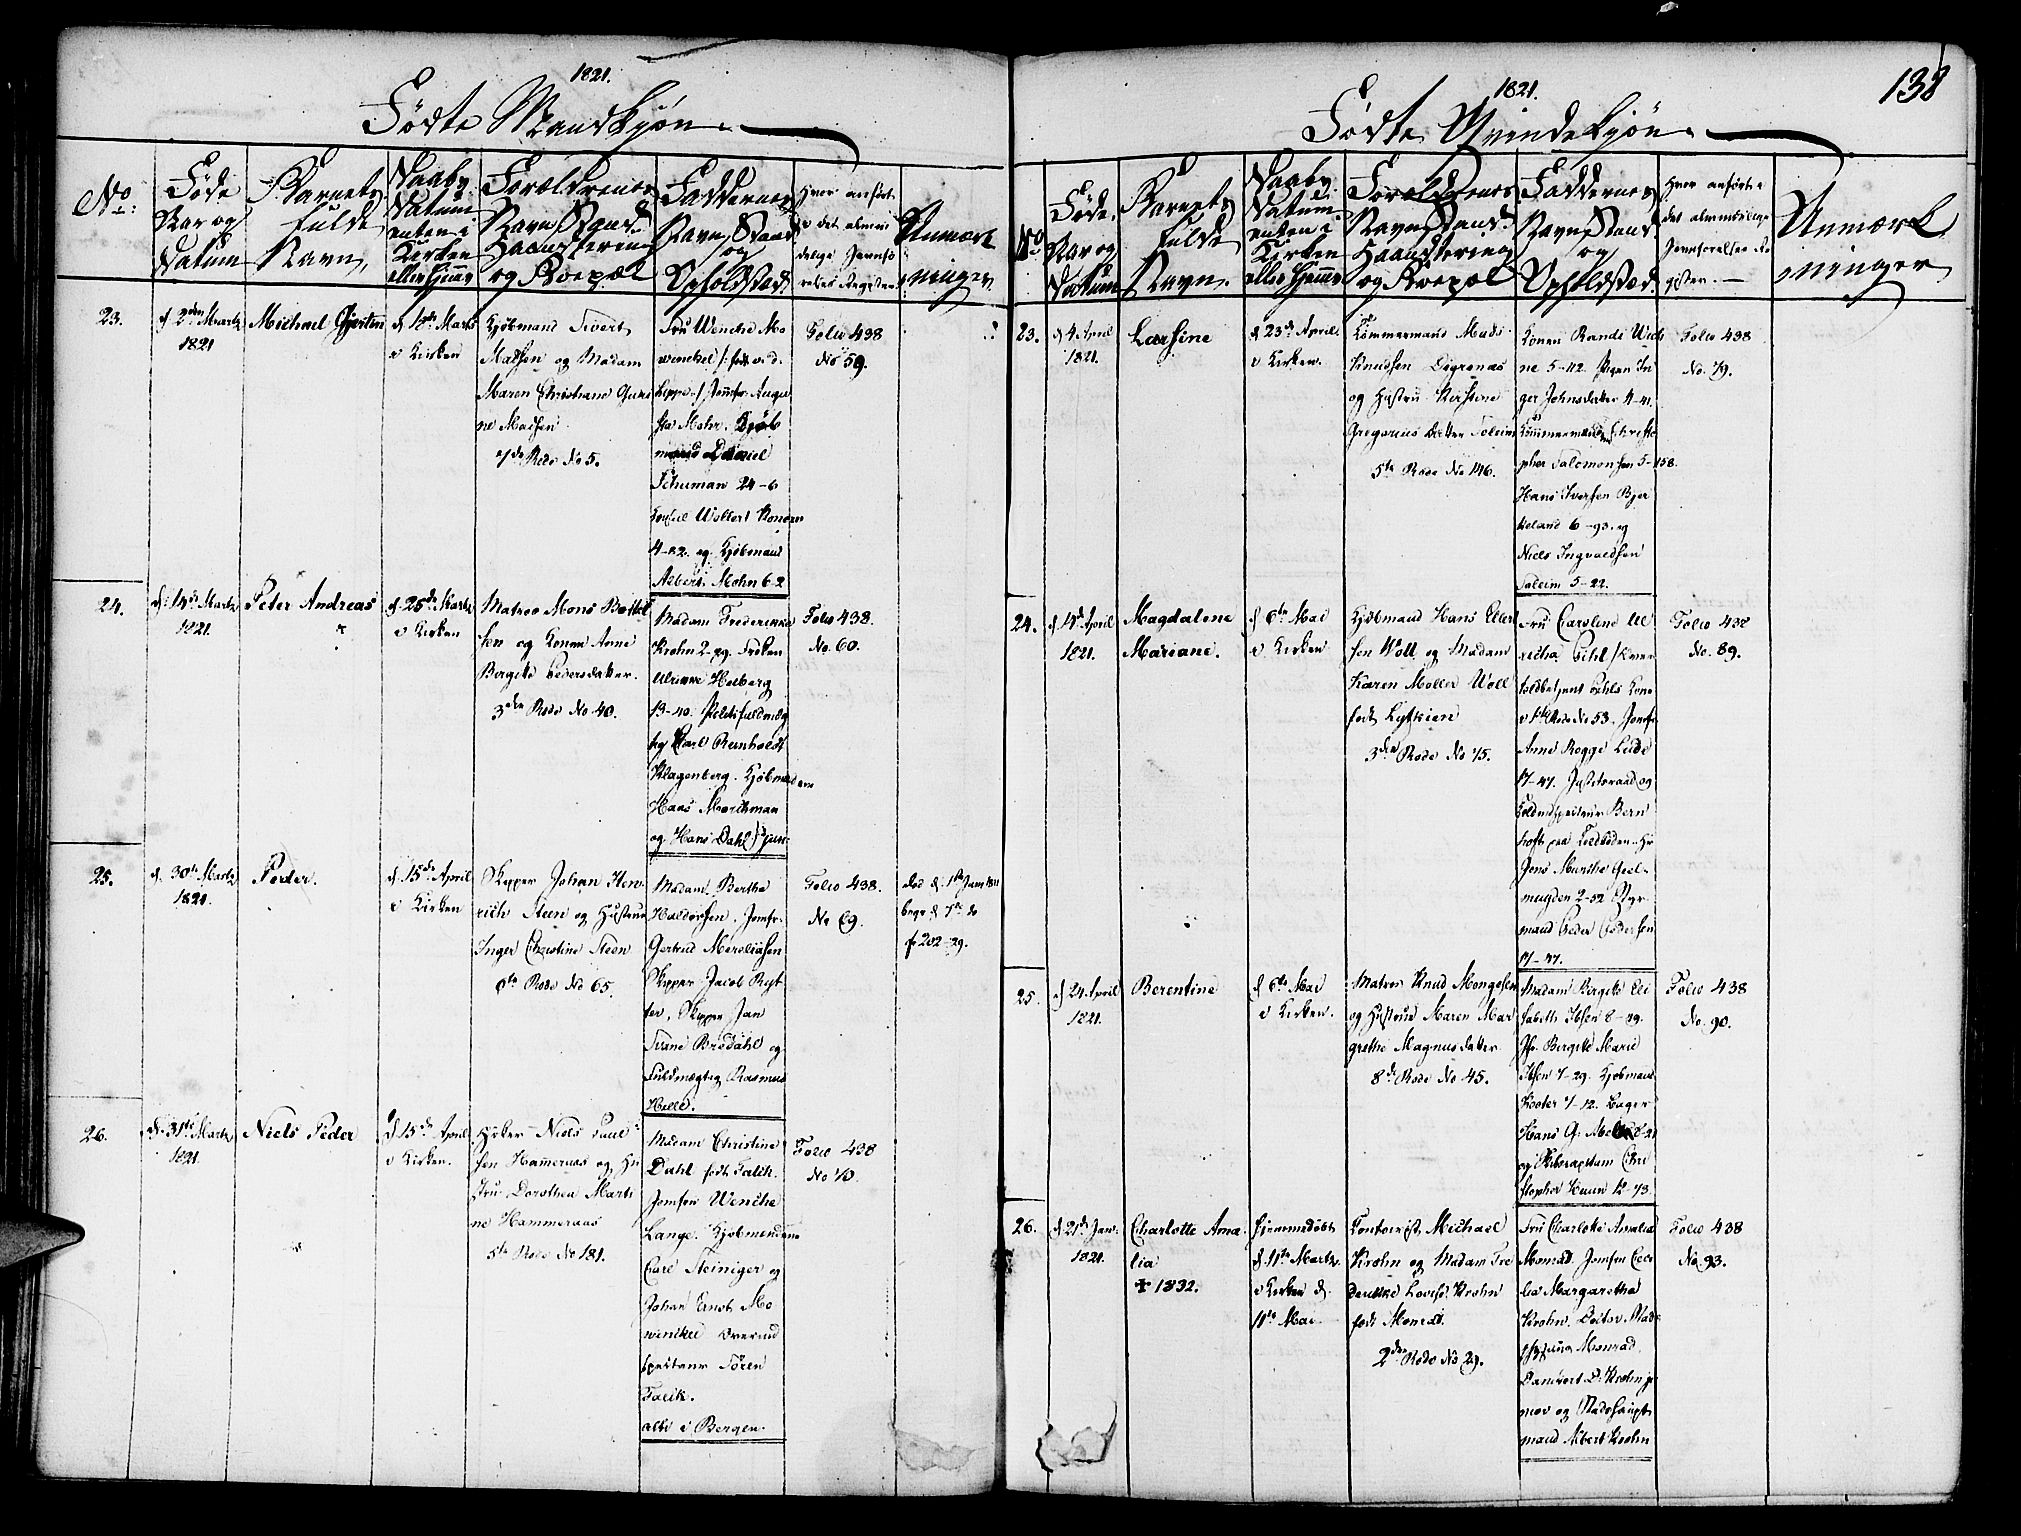 1821.
Födte Mandkjön
No.
Föde
Aar og
Datum
Barnets
fulde
Navn,
Daabs
Datum
enten i
Kirken
eller hjeme
Forældrenes
Navn, Stand
Haandtering
og Boepæl
Faddernes
Navn, Stand
og
Opholdsted.
Hvor anfört
i det almin
delige Jevnfö
relses Register
Anmærk
ninger
23.
d. 2den Martz
1821
Michael Gjertsen
i Kirken
Kjöbmand Sivert
Madsen og Madam
Maren Christiane
ne Madsen
7de Rode No 5.
Fru Wenche Mo
winckel
Jomfr. Augu
sta Mohr. Kjöb
mand Daniel
Schuman 24-6
Consul Woltert Konow
4-82. og Kjöbmand
Albert Mohn 6-2
Folio 438
No 59.
24.
d. 14de Martz
1821.
Peter Andreas
+
d. 25de Martz
i Kirken
Matros Mons Bottel
sen og Konen Anne
Bergitte Pedersdatter.
3die Rode No 40.
Madam Frederikke
Krohn 2-29. Fröken
Ulricke Heiberg
13-40.
Carl Reinholdt
Klagenberg. Kjöbmændene
Hans
og Hans Dahl junr
Folio 438.
No. 60.
25.
d. 30te Martz
1821.
Peder.
d. 15de April
i Kirken
Skipper Johan Hen
rich Steen og Hustrue
Inger Christine Steen
6te Rode No 65.
Madam Berthe
Haldorsen. Jomfr.
Gertrud
Skipper Jacob Ryt
ter, Skipper Jan
Svane Bredahl og
Fuldmægtig Rasmus
Helle.
Folio 438.
No 69.
Död d. 1te
begr. d. 7de do
fo 202-29.
26.
d. 31te Martz
1821.
Niels Peder
d. 15de April
i Kirken.
Höker Niels Paul
sen Hammeraas og Hu
stru Dorothea Marti
ne Hammeraas
5te Rode No 181.
Madam Christine
Dahl födt Falck.
Jomfru Wenche
Lange. Kjöbmændene
Carl Steiniger og
Johan Ernst Mo
winckel
Sören
Falck.
alle i Bergen.
Folio 438
No 70.
1821.
138
Födte Qvindekjön
No
Föde
Aar og
Datum
Barnets
fulde
Navn.
Daabs
Datum
enten i
Kirken
eller hjeme
Forældrenes
Navn, Stand
Haandtering
og Boepæl
Faddernes
Navn, Stand
og
Opholdsted.
Hvor anfört i
det almindelige
Jevnförelses Re
gister.
Anmærk
ninger
23.
d. 4. April
1821.
Larsine
d. 23de April.
i Kirken.
Tömmermand Mads
Knudsen Digranæs
og Hustru Kirstine
Gregorius datter Soleim
5te Rode No 146.
Konen Rande
ne 5-112. Pigen In
ger Johnsdatter 4-41.
Tömmermænd Christo
pher Salomonsen 5-158.
Hans Iversen Bjer
keland 6-93. og
Niels Ingvaldsen
Soleim 5-22.
Folio 438
No. 79.
24.
d. 14de April
1821.
Magdalene
Mariane.
d. 6te Mai
i Kirken
Kjöbmand Hans
sen Woll og Madam
Karen Moller Woll
födt Lydkien
3die Rode No 75.
Fru Caroline Ul
richa Pihl
toldbetjent Pihls Kone
i 1te Rode No 53. Jomfr.
Anne Rogge Ledde
17-47. Justitsraad og
Toldinspecteur Bern
hoft paa Toldboden. Hr
Jens Munthe Geel-
muyden 2-52 Styr
mand Peder Pedersen
17-47.
Folio 438
No. 89.
25.
d. 24 April
1821.
Berentine
d. 6te Mai
i Kirken.
Matros Knud Mongesen
og Hustrue Maren Mar
grethe Magnusdatter
8de Rode No 45.
Madam Bergitte Eli
sabeth Ibsen 8-29.
Jfr. Bergitte Marie
Ibsen 7-29. Kjöbmand
Kooter 7-12. Bager
Hans G.
og Skibscaptain Chri
stopher Knun 12-73.
Folio 438
No. 90.
26.
d. 21de Jan.
1821.
Charlotte Ama
lia
+ 1832.
hjemmedöbt
d. 11te Martz.
i Kirken d.
11te Mai
Contorist Michael
Krohn og Madam Fre
derikke Lovise Krohn
födt Monrad.
2den Rode No 29.
Fru Charlotte Amalia
Monrad. Jomfru Ceci
lia Margaretha
Krohn. Doctor
Monrad.
Danckert D: Krohn ju
nior og Stadshaupt
mand Albert Krohn
Folio 438
No. 93.